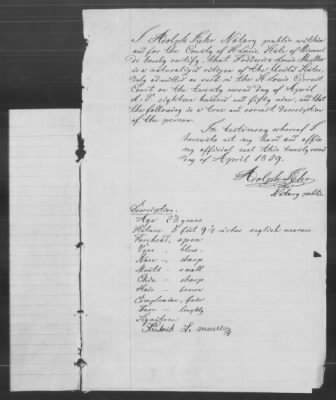 I Adolph Isler Notary public within
and for the County of St Louis State of Missouri
do hereby certify, that Frederick Louis Mueller
is a naturalized citizen of the United States,
duly admitted as such in the St Louis Circuit
Court on the twenty second day of April
A. D. eighteen hundred and fifty nine, and that
the following is a true and correct description
of the person.
In testimony whereof I
hereunto set my hand and affix
my official seal this twenty second
day of April 1859.
Adolph Isler
Notary public
Description
Age 23 years
Stature 5 feet 9½ inches english measure
Forehead, open
Eyes - blue
Nose - sharp
Mouth - small
Chin - sharp
Hair - brown
Complexion fair
Face - lengthy
Signature
Friedrich L. Mueller